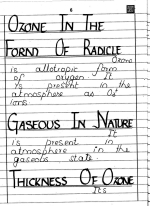 6
OZONE IN THE
FORND OF RADICLE
Ozone
is allotropic form
of oxygen. It
is present in the
atmosphere as O3
ions.
GASEOUS IN NATURE
It
is present in
atmosphere in the
gaseous state.
THICKNESS OF OZONE
Its